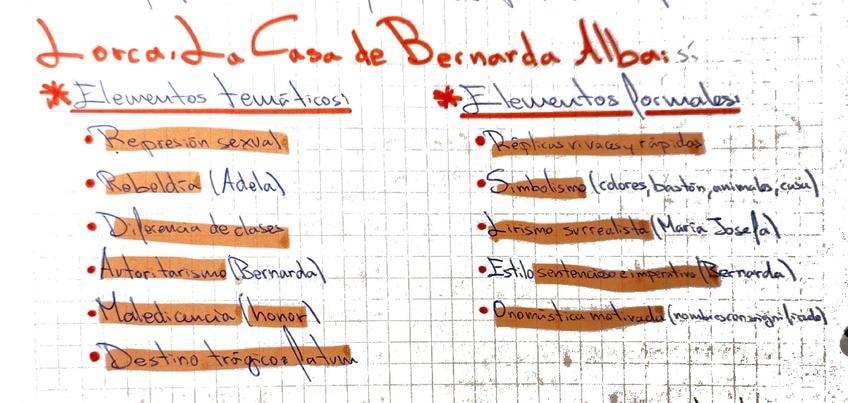 Lorca. La Casa de Bernarda Alba:
* Elementos temáticos:
• Represión sexual
• Rebeldía (Adela)
• Diferencia de clases
• Autoritarismo (Bernarda)
• Maledicencia (honor)
• Destino trágico: fatum
* Elementos formales:
• Réplicas vivaces y rápidas
• Simbolismo (colores, bastón, animales, casa)
• Lirismo surrealista (María Josefa)
• Estilo sentencioso e imperativo (Bernarda)
• Onomástica motivada (nombres con significado)